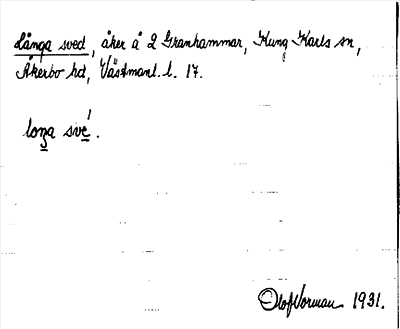 Långa sved, åker å 2 Granhammar, Kung Karls sn,
Åkerbo hd, Västmanl. l. 17.
loŋa sve ́.
Olof Norman 1931.